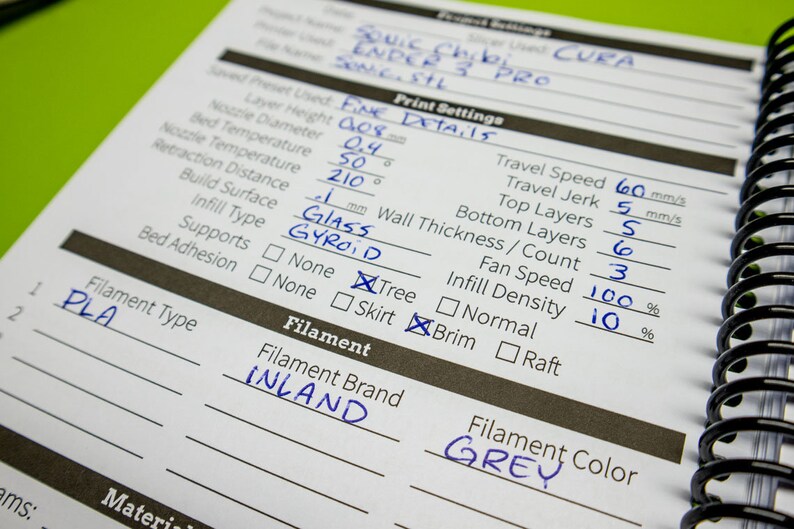 Project Settings
Project Name: SONIC Chibi Slicer Used: CURA
Printer Used: ENDER 3 PRO
File Name: SONIC.stl
Print Settings
Saved Preset Used: FINE DETAILS
Layer Height 0.08 mm Travel Speed 60 mm/s
Nozzle Diameter 0.4 Travel Jerk 5 mm/s
Bed Temperature 50 ° Top Layers 5
Nozzle Temperature 210 ° Bottom Layers 6
Retraction Distance .1 mm Wall Thickness / Count 3
Build Surface GLASS Fan Speed 100 %
Infill Type GYROID Infill Density 10 %
Supports None Tree Normal
Bed Adhesion None Skirt Brim Raft
Filament
Filament Type Filament Brand Filament Color
1 PLA INLAND GREY
2
Material
ams: